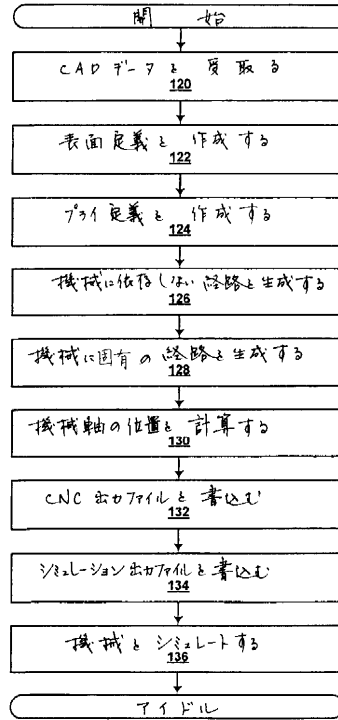 開 始
CADデータを 受取る
120
表面定義を 作成する
122
プライ定義を 作成する
124
機械に依存しない経路を生成する
126
機械に固有の経路を生成する
128
機械軸の位置を計算する
130
CNC出力ファイルを書込む
132
シミュレーション出力ファイルを書込む
134
機械をシミュレートする
136
アイドル